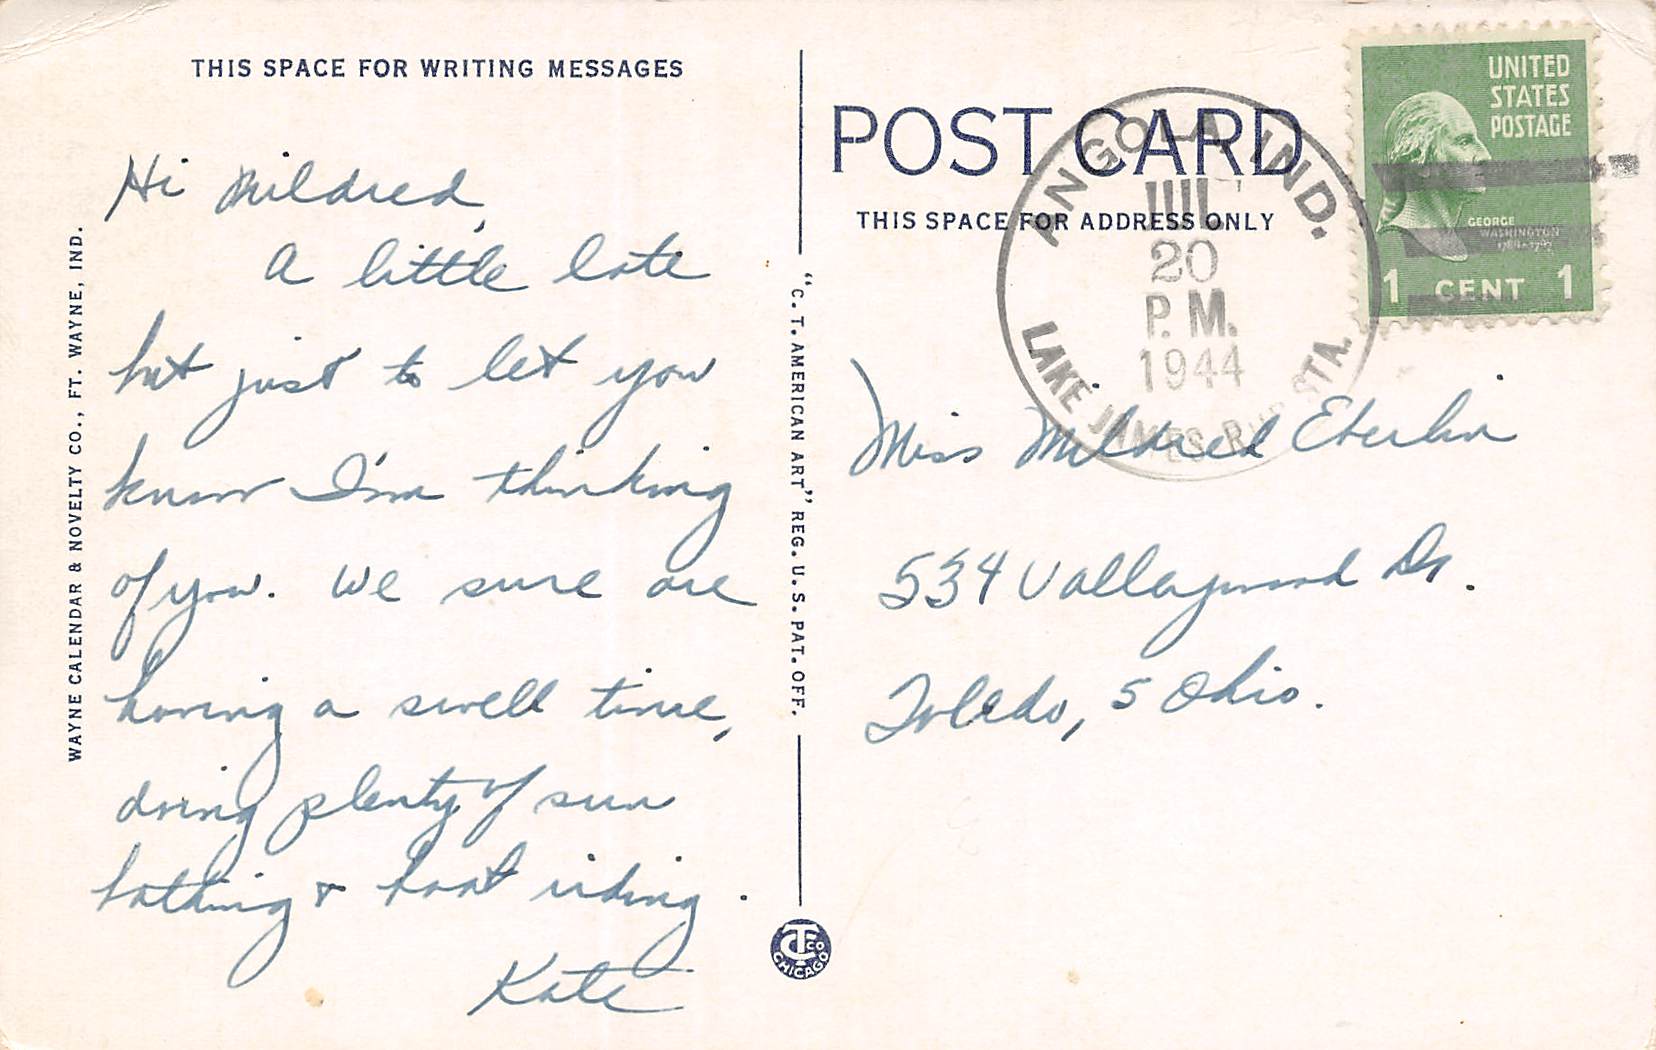 THIS SPACE FOR WRITING MESSAGES
Hi Mildred,
A little late
but just to let you
know I'm thinking
of you. We sure are
having a swell time,
doing plenty of sun
bathing & boat riding.
Kate
WAYNE CALENDAR & NOVELTY CO., FT. WAYNE, IND.
"C. T. AMERICAN ART" REG. U. S. PAT. OFF.
CT CO
CHICAGO
POST CARD
THIS SPACE FOR ADDRESS ONLY
ANGOLA IND.
JUL
20
P. M.
1944
LAKE JAMES STA.
UNITED
STATES
POSTAGE
GEORGE
WASHINGTON
1789-1797
1 CENT 1
Miss Mildred Eberlin
534 Valleywood Dr.
Toledo, 5 Ohio.